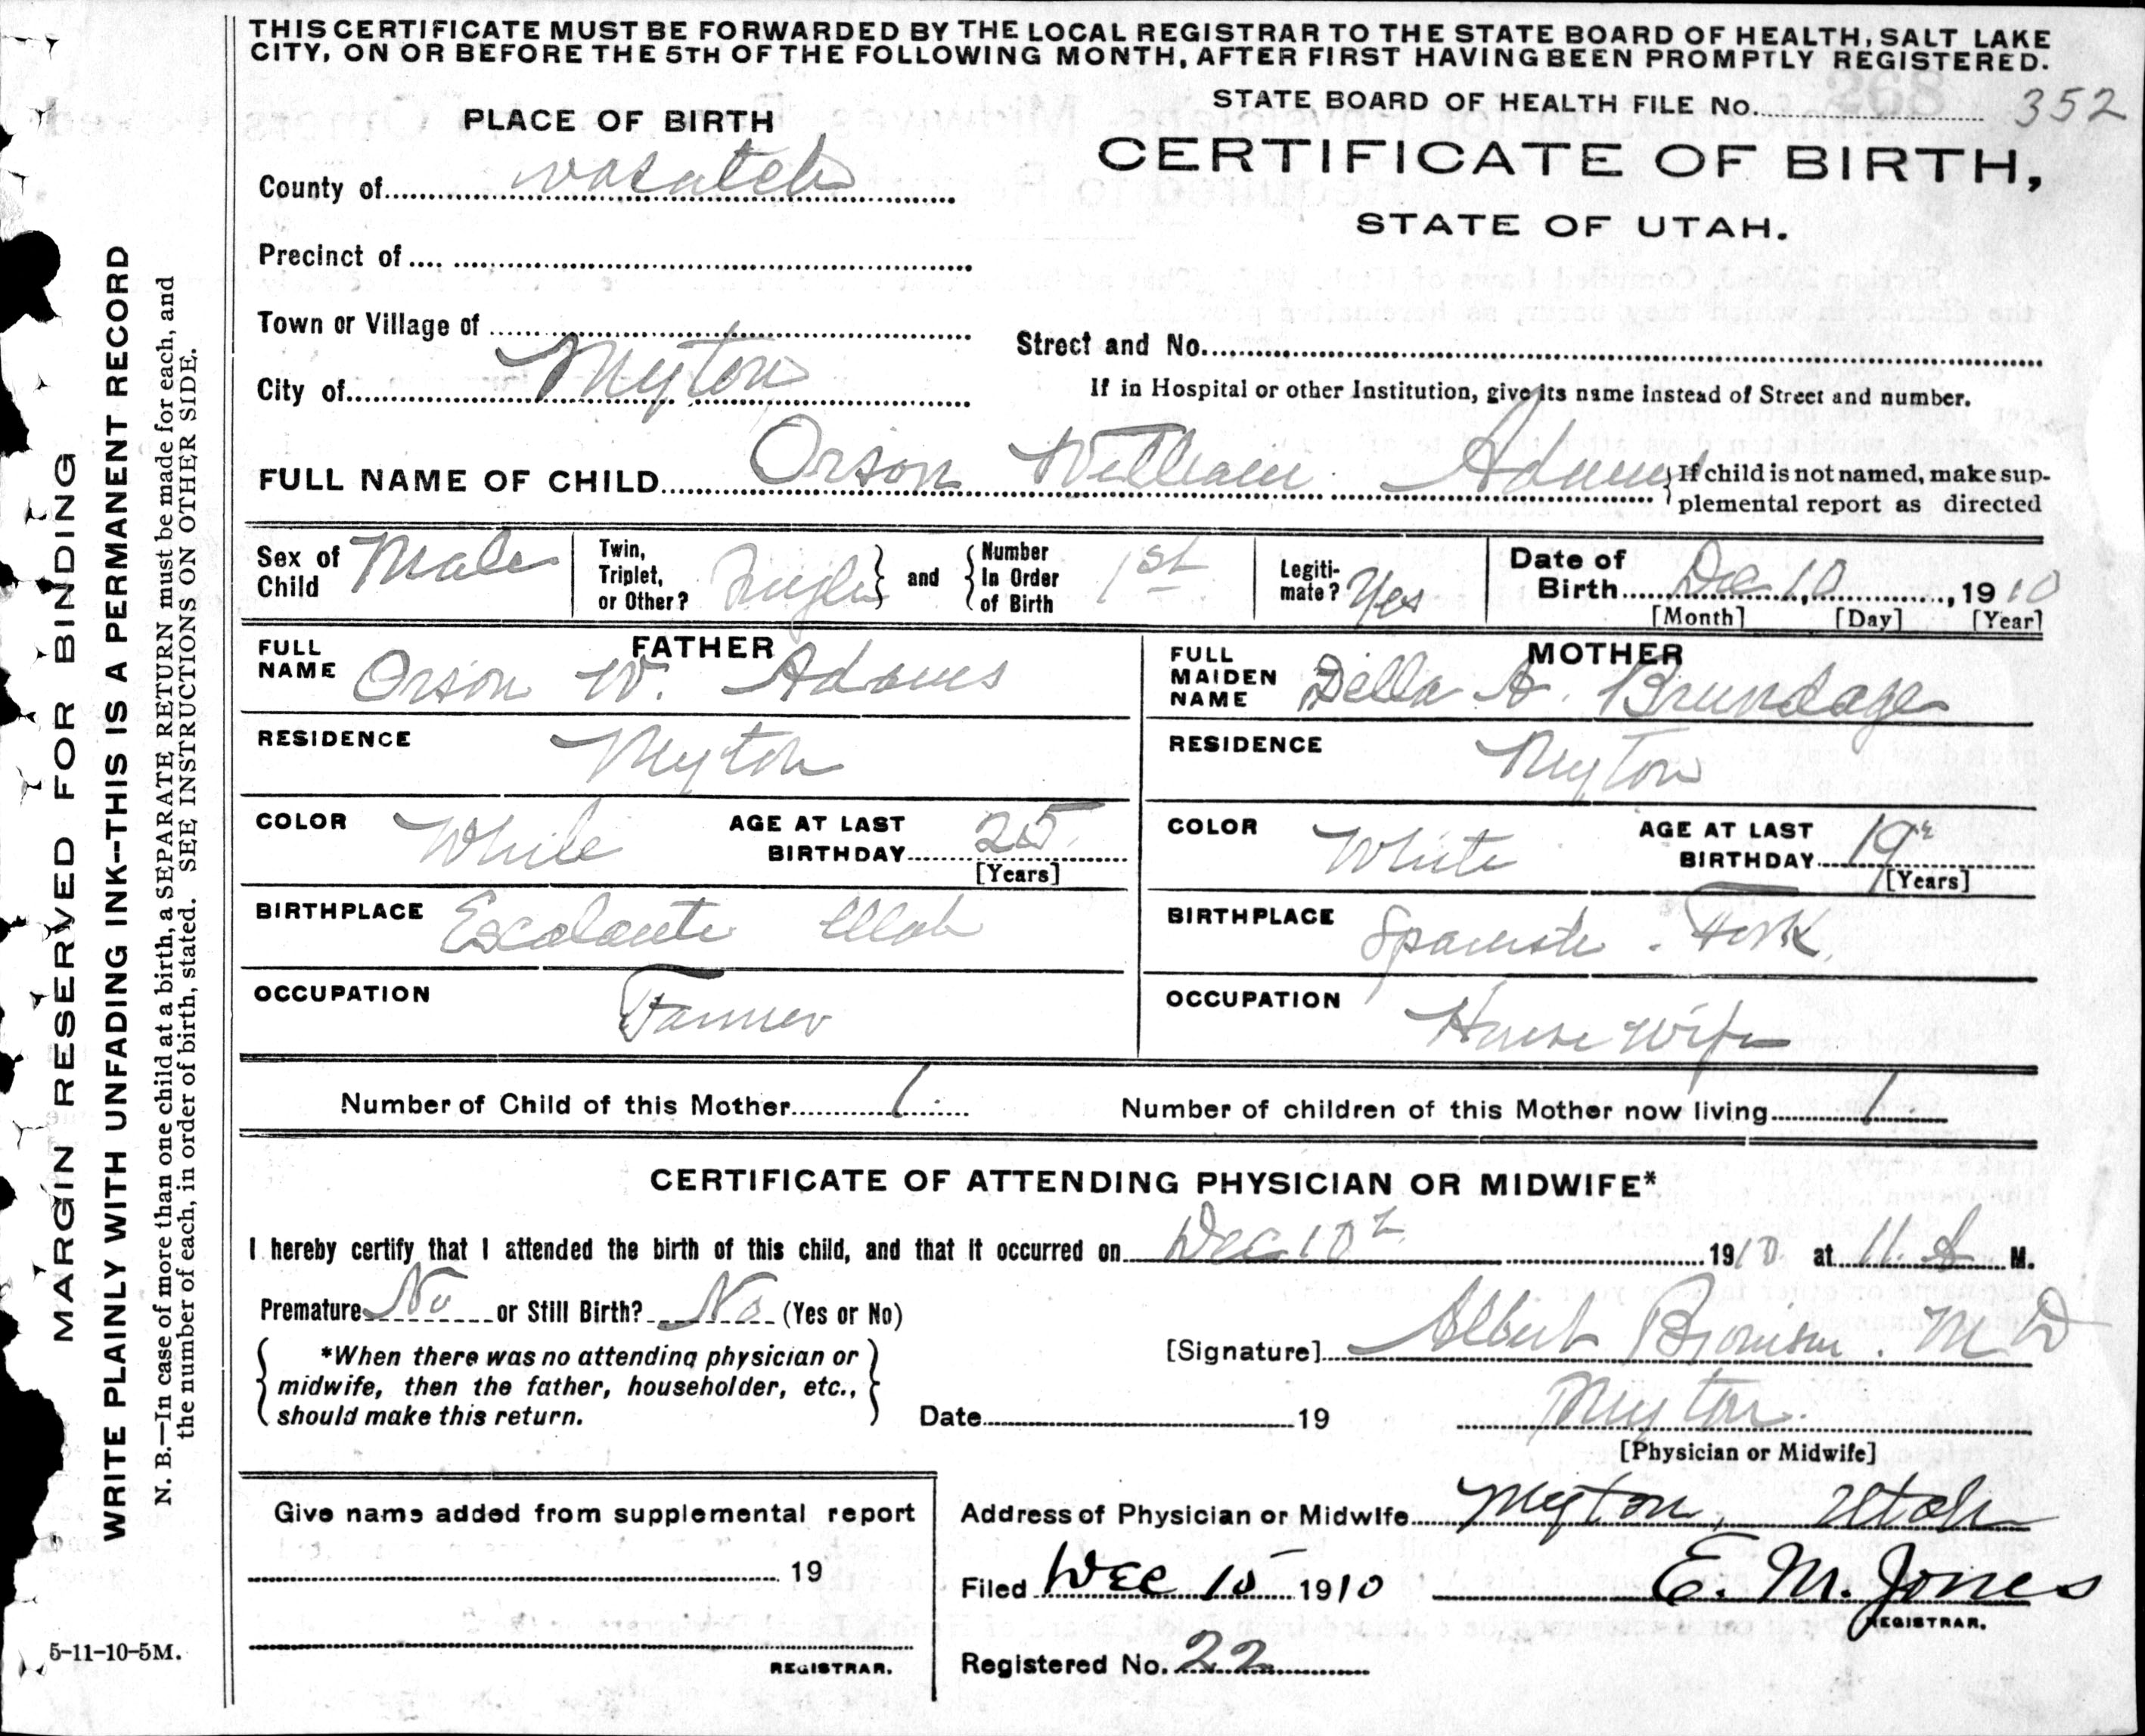 THIS CERTIFICATE MUST BE FORWARDED BY THE LOCAL REGISTRAR TO THE STATE BOARD OF HEALTH, SALT LAKE
CITY, ON OR BEFORE THE 5TH OF THE FOLLOWING MONTH, AFTER FIRST HAVING BEEN PROMPTLY REGISTERED.
STATE BOARD OF HEALTH FILE No. 268 352
PLACE OF BIRTH
CERTIFICATE OF BIRTH,
STATE OF UTAH.
County of wasatch
Precinct of
Town or Village of
Street and No.
City of Myton
If in Hospital or other Institution, give its name instead of Street and number.
FULL NAME OF CHILD Orson William Adams
If child is not named, make sup-
plemental report as directed
Sex of Child Male
Twin, Triplet, or Other? Single and Number In Order of Birth 1st
Legiti-
mate? Yes
Date of Birth Dec 10, 1910
[Month] [Day] [Year]
FATHER
FULL NAME Orson W. Adams
RESIDENCE Myton
COLOR White AGE AT LAST BIRTHDAY 25
[Years]
BIRTHPLACE Escalante Utah
OCCUPATION Farmer
MOTHER
FULL MAIDEN NAME Della A. Brundage
RESIDENCE Myton
COLOR White AGE AT LAST BIRTHDAY 19
[Years]
BIRTHPLACE Spanish Fork
OCCUPATION House Wife
Number of Child of this Mother 1 Number of children of this Mother now living 1
CERTIFICATE OF ATTENDING PHYSICIAN OR MIDWIFE*
I hereby certify that I attended the birth of this child, and that it occurred on Dec 10 1910 at 11 A M.
Premature No or Still Birth? No (Yes or No)
[Signature] Albert M D
*When there was no attending physician or
midwife, then the father, householder, etc.,
should make this return.
Date 19 Myton
[Physician or Midwife]
Give name added from supplemental report
19
REGISTRAR.
Address of Physician or Midwife Myton, Utah
Filed Dec 15 1910 E. M. Jones
REGISTRAR.
Registered No. 22
5-11-10-5M.
MARGIN RESERVED FOR BINDING
WRITE PLAINLY WITH UNFADING INK--THIS IS A PERMANENT RECORD
N. B.—In case of more than one child at a birth, a SEPARATE RETURN must be made for each, and
the number of each, in order of birth, stated. SEE INSTRUCTIONS ON OTHER SIDE.